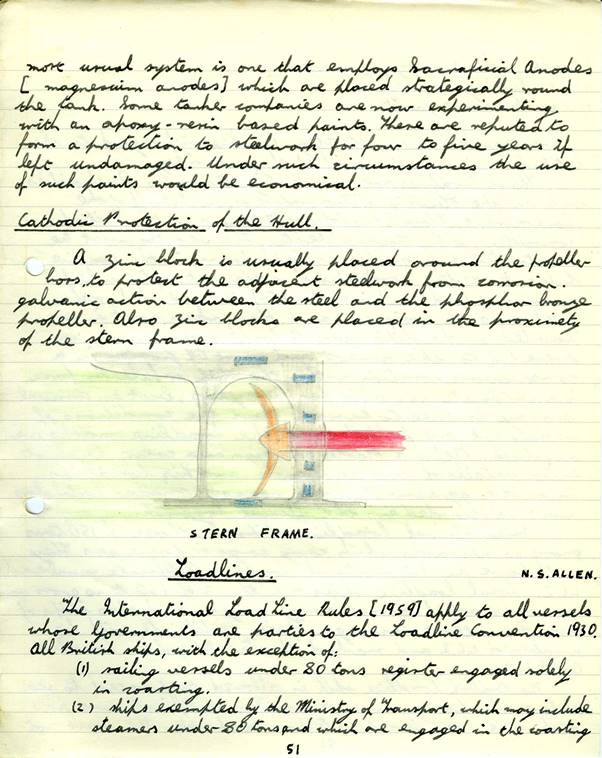 most usual system is one that employs Sacraficial Anodes
[ magnesium anodes] which are placed strategically round
the tank. Some tanker companies are now experimenting
with an apoxy-resin based paints. These are reputed to
form a protection to steelwork for four to five years if
left undamaged. Under such circumstances the use
of such paints would be economical.
Cathodic Protection of the Hull.
A zinc block is usually placed around the propeller
boss, to protect the adjacent steelwork from corrosion.
galvanic action between the steel and the phosphor bronze
propeller. Also zinc blocks are placed in the proximety
of the stern frame.
STERN FRAME.
Loadlines.
N.S. ALLEN.
The International Load Line Rules [1959] apply to all vessels
whose Governments are parties to the Loadline Convention 1930.
All British ships, with the exception of:
(1) sailing vessels under 80 tons register engaged solely
in coasting.
(2) ships exempted by the Ministry of Transport, which may include
steamers under 80 tons and which are engaged in the coasting
51